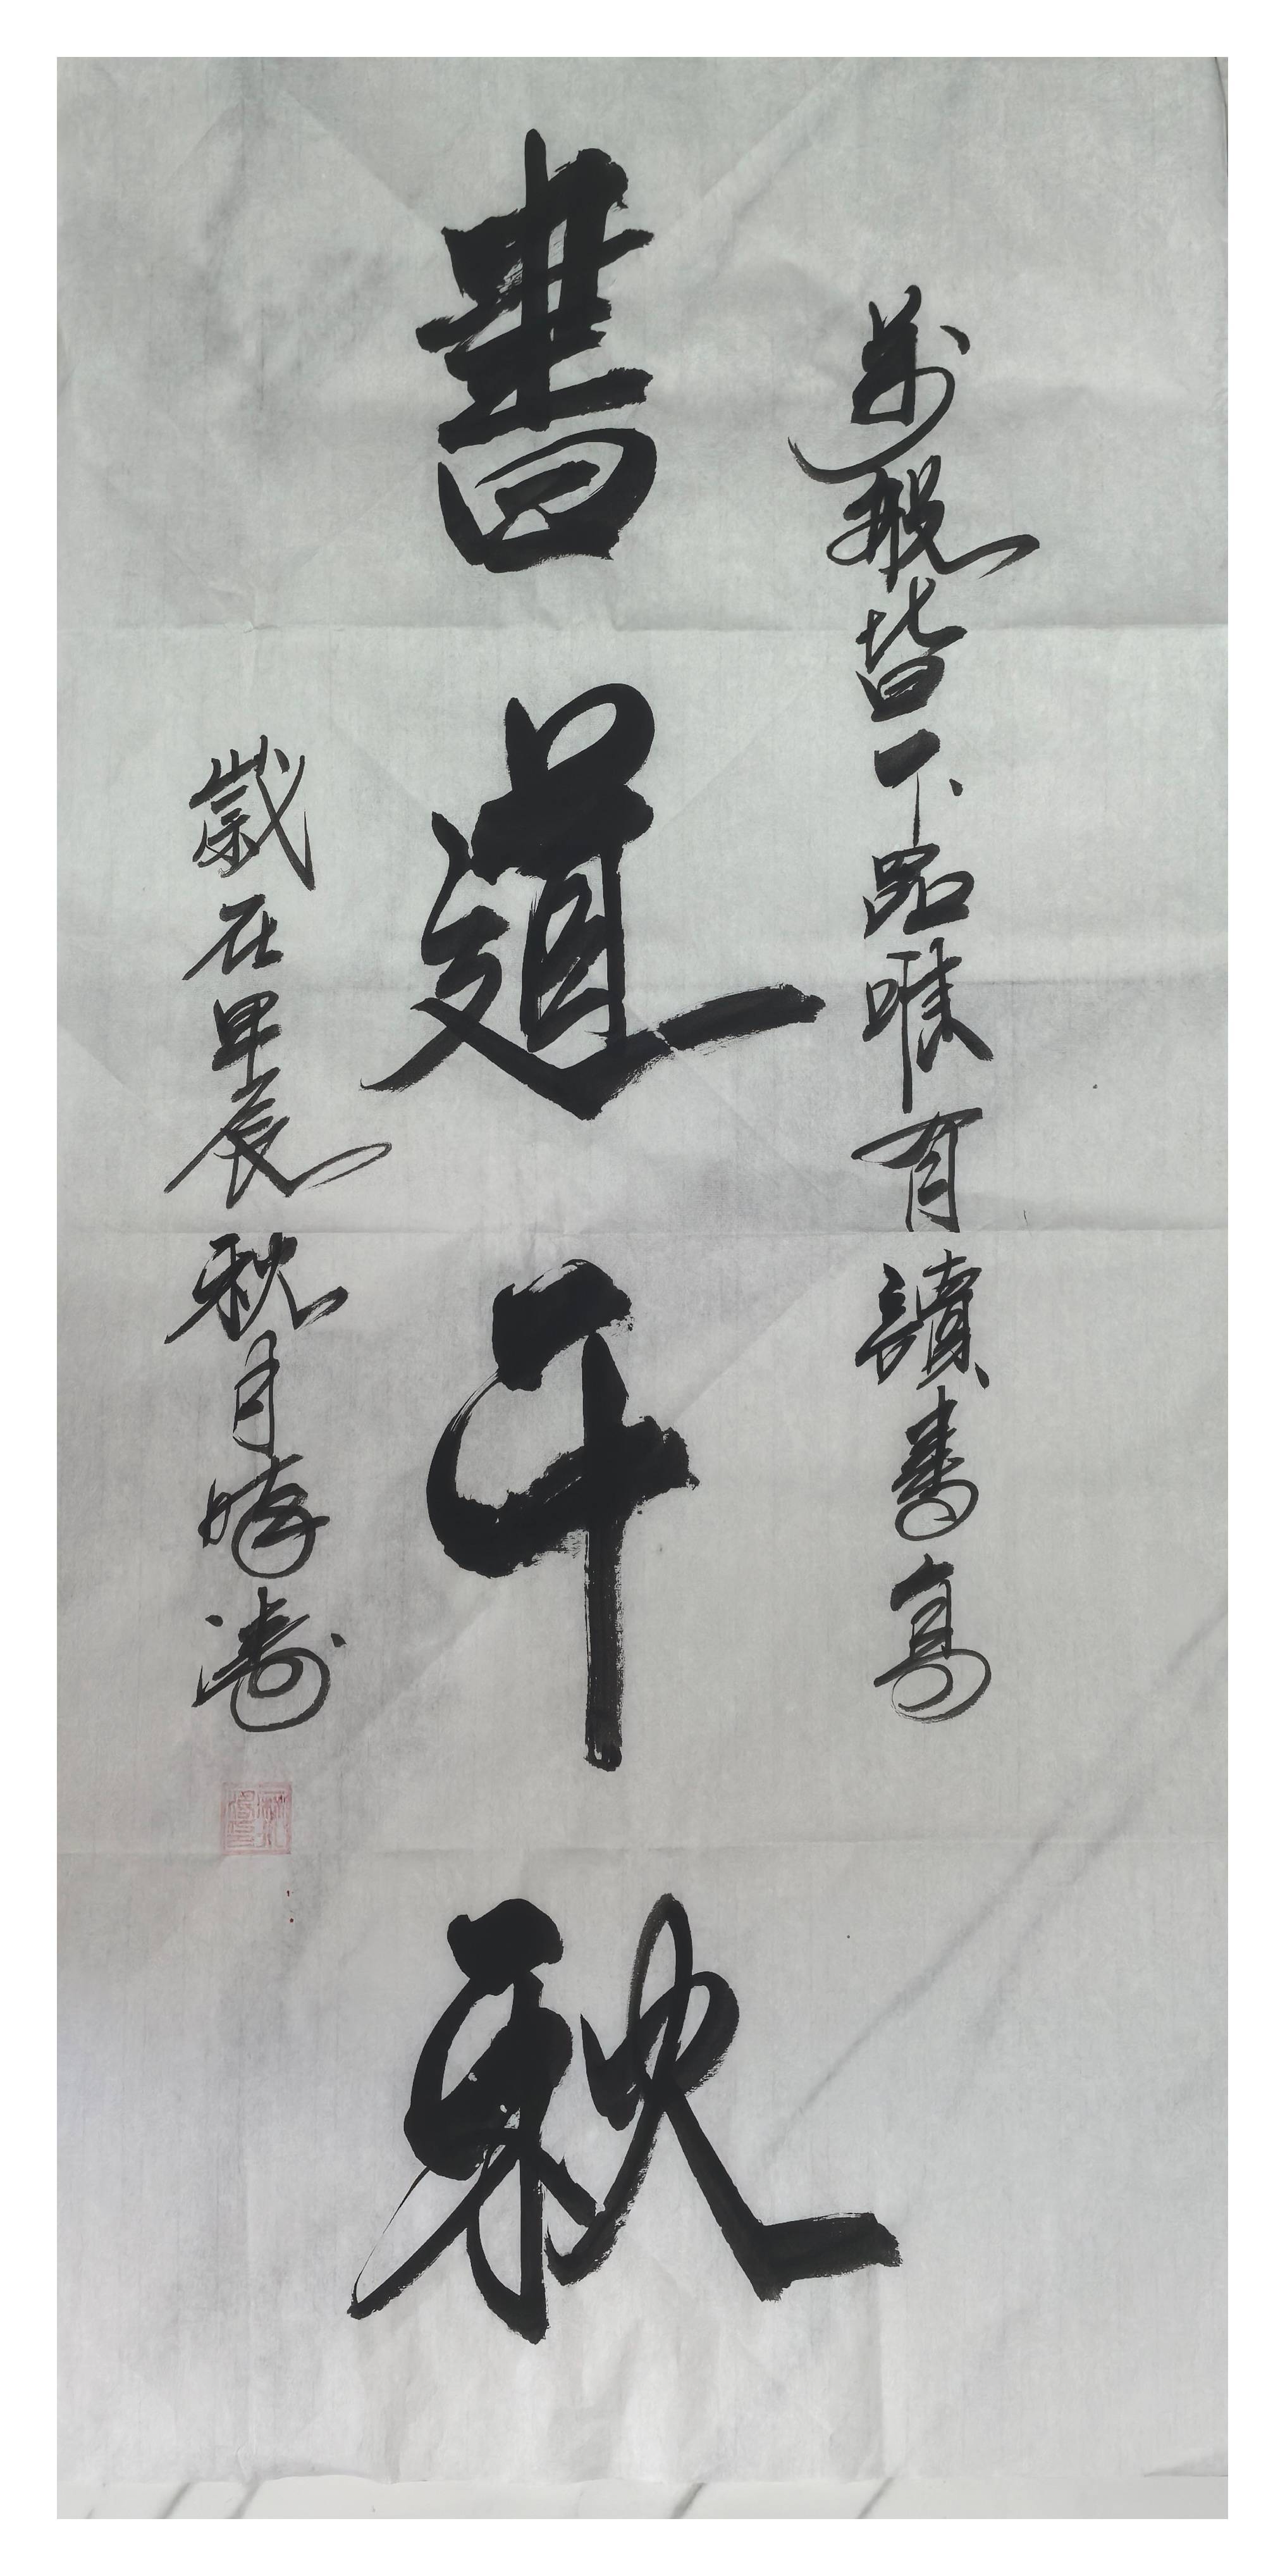 萬般皆下品唯有讀書高
書道千秋
歲在甲辰秋月曉濤